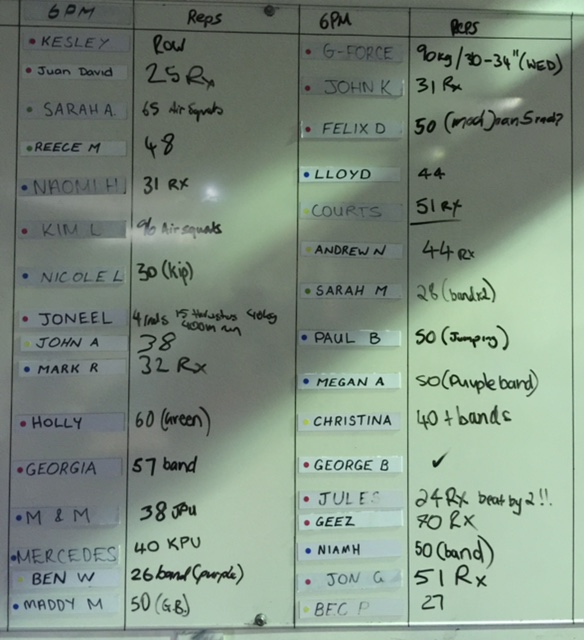 6PM Reps
KESLEY Row
Juan David 25 Rx
SARAH A 65 Air Squats
REECE M 48
NAOMI H 31 RX
KIM L 90 Air squats
NICOLE L 30 (kip)
JONEEL 4 rnds 15 thrusters 40kg
400m run
JOHN A 38
MARK R 32 Rx
HOLLY 60 (Green)
GEORGIA 57 band
M & M 38 JPU
MERCEDES 40 KPU
BEN W 26 band (purple)
MADDY M 50 (G.B.)
6PM Reps
G-FORCE 90kg / 30-34" (WED)
JOHN K 31 Rx
FELIX D 50 (mod) ran 5 rnd?
LLOYD 44
COURTS 51 RX
ANDREW N 44 RX
SARAH M 28 (bandx2)
PAUL B 50 (Jumping)
MEGAN A 50 (Purple band)
CHRISTINA 40 + bands
GEORGE B ✓
JULES 24 RX beat by 2!!.
GEEZ 70 RX
NIAMH 50 (band)
JON G 51 Rx
BEC P 27